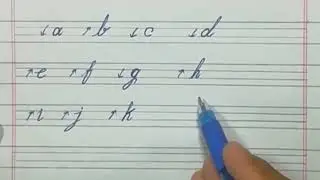 ↓a ↑b ↓c ↓d
↑e ↑f ↓g ↑h
↑i ↑j ↑k